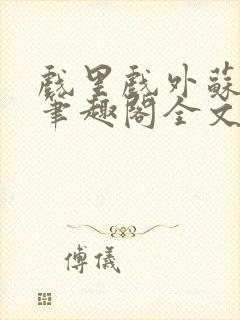 戲里戲外蘇
筆趣閣全文
傅儀